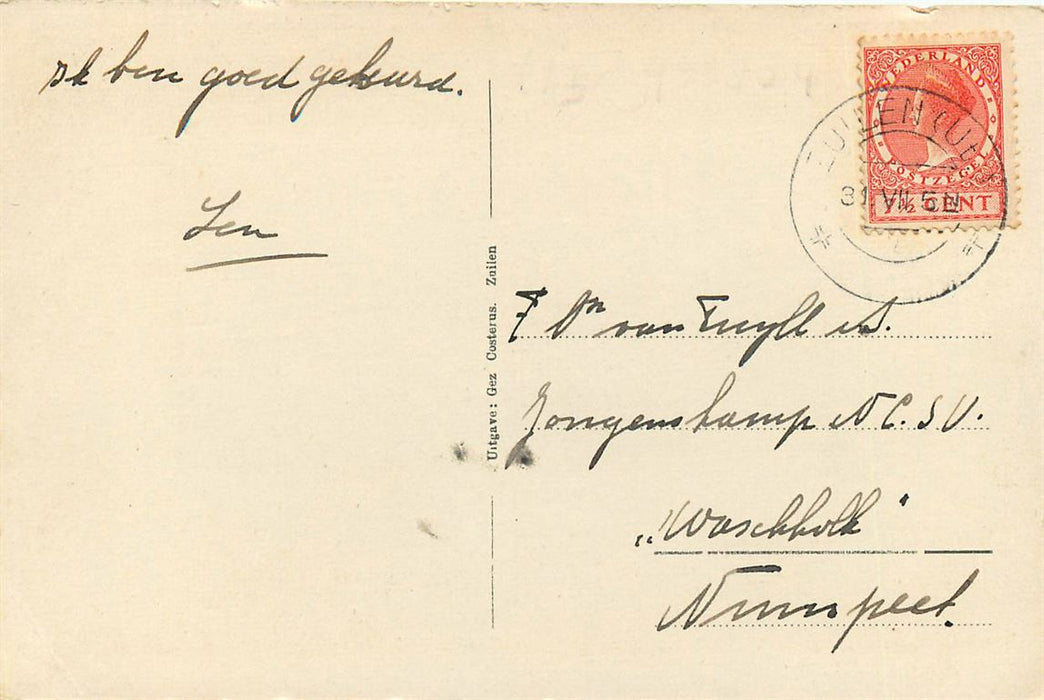 Ik ben goed gekeurd.
Len
Uitgave: Gez Costerus. Zuilen
NEDERLAND
POSTZEGEL
7½ CENT
ZUILEN (U
31 VII
van Tuyll
Jongenskamp N.C.S.V.
„Waschkolk"
Nunspeet.